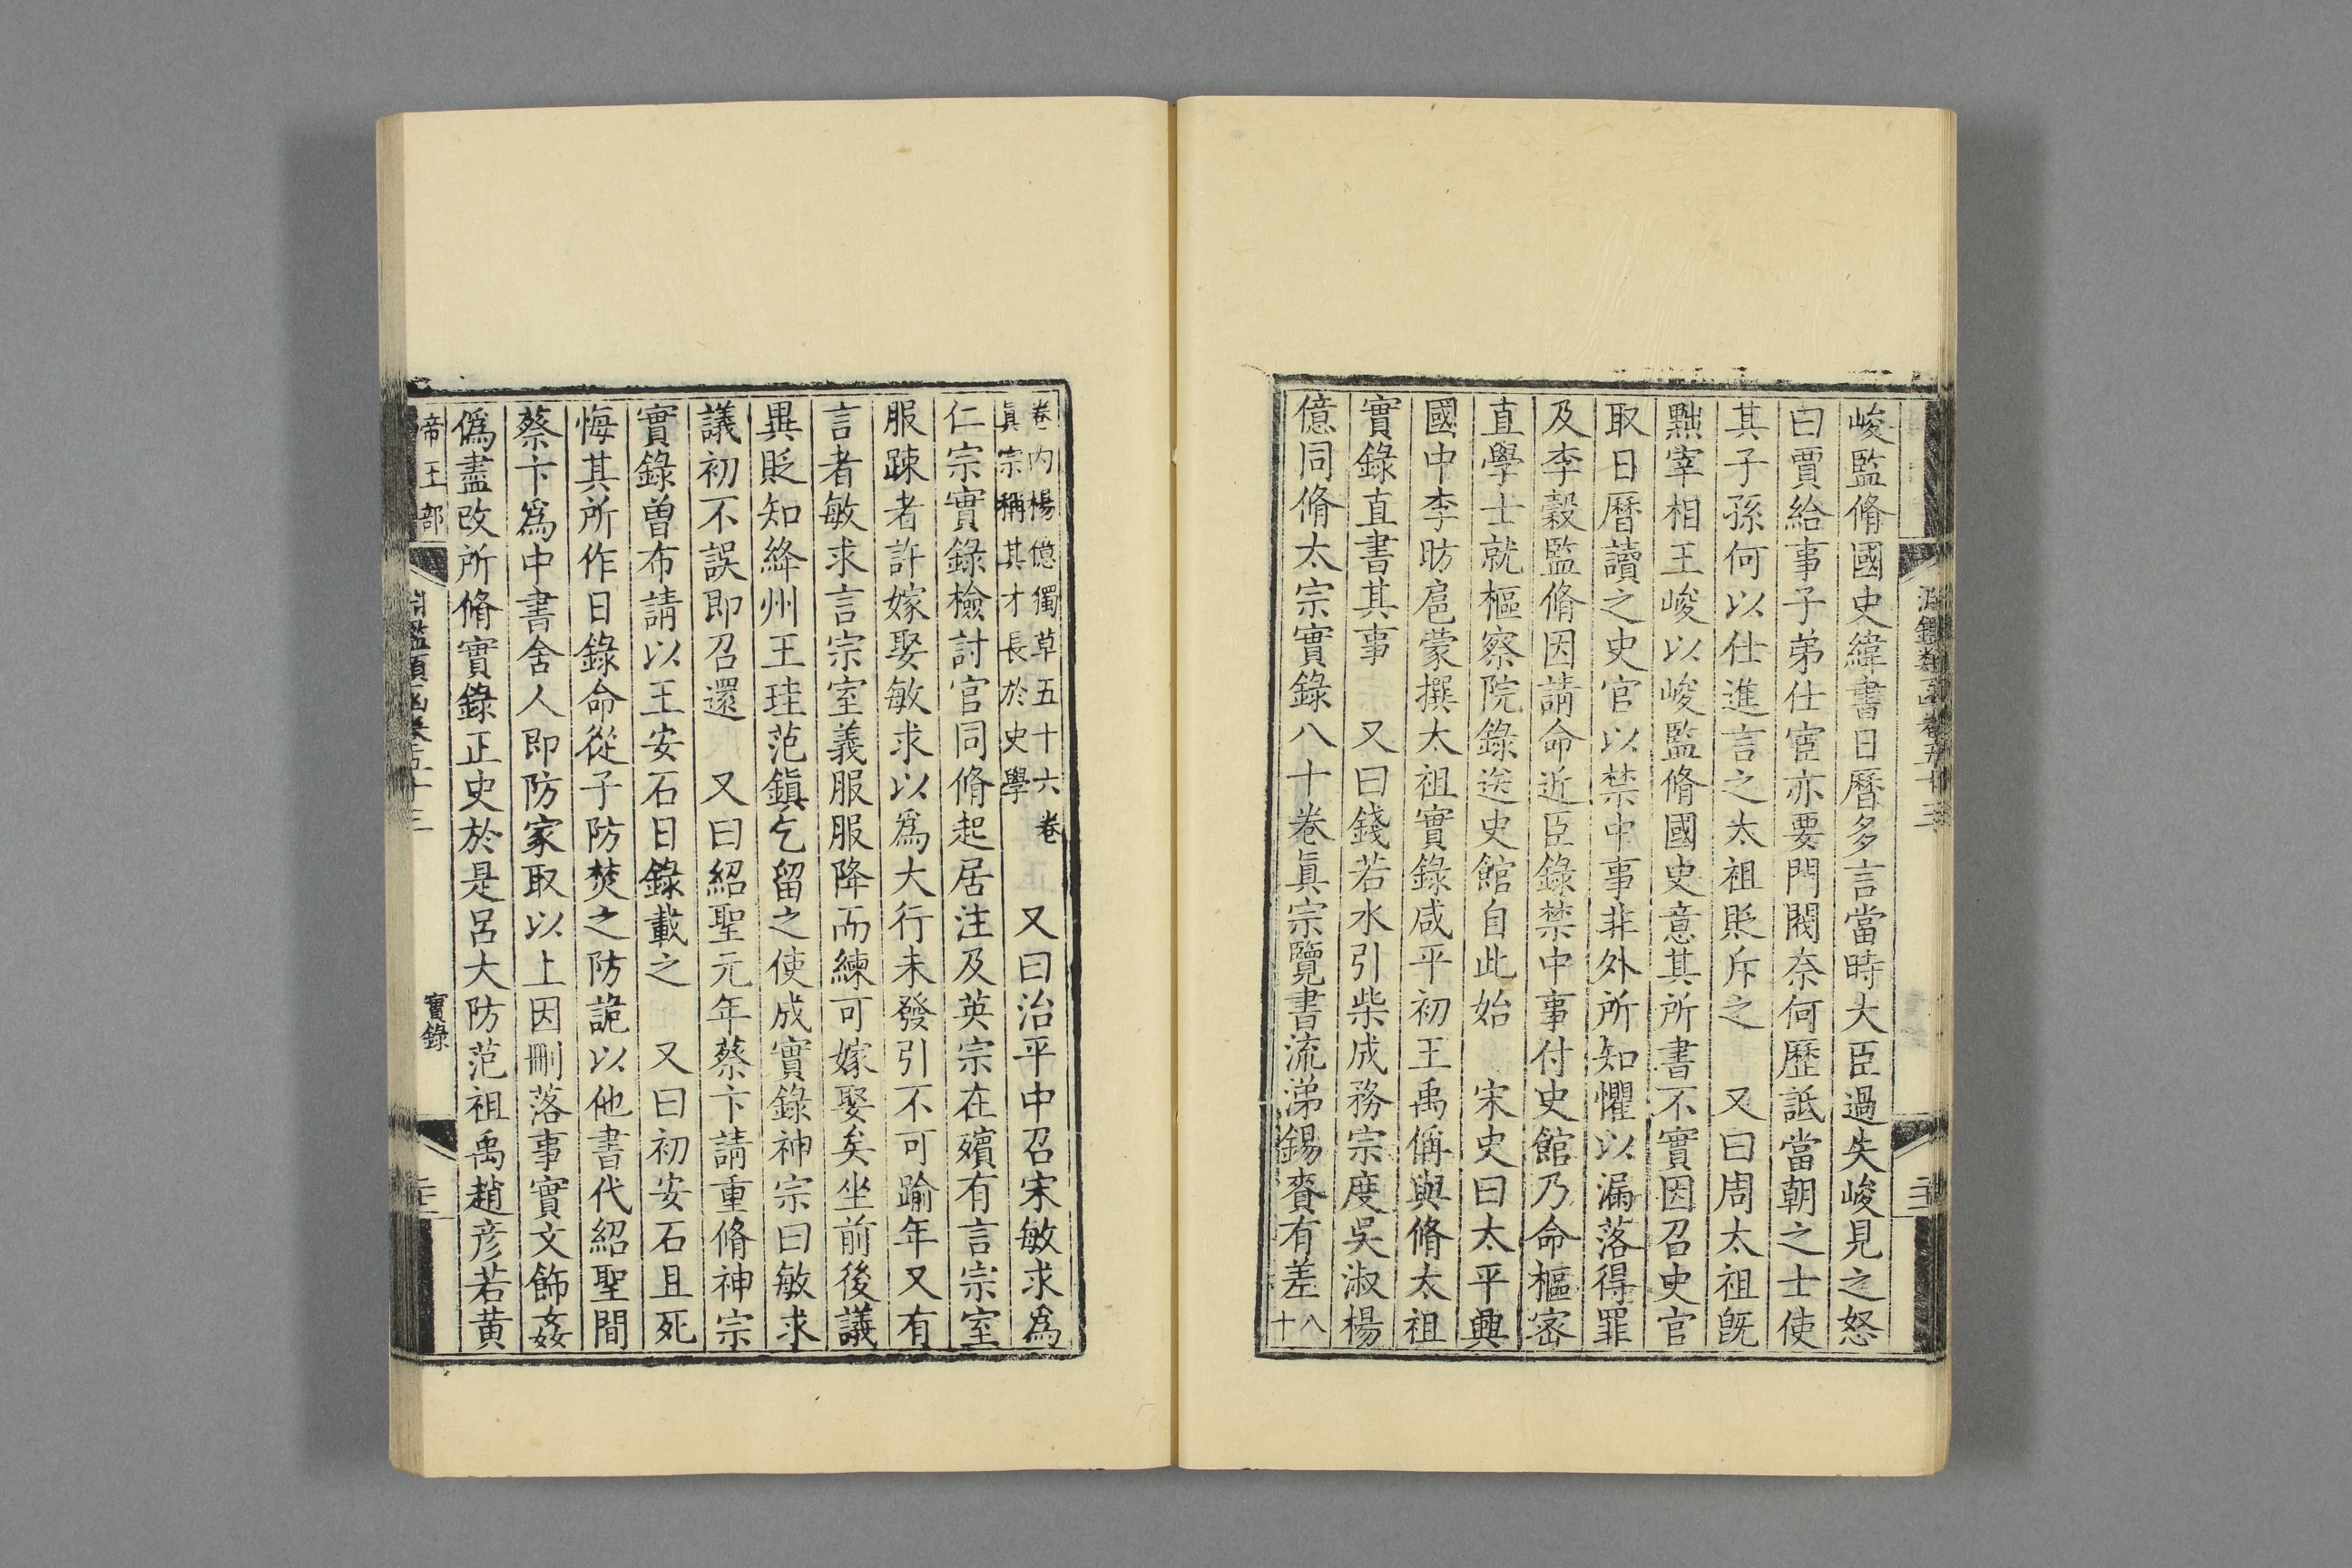 峻監脩國史緯書日曆多言當時大臣過失峻見之怒
曰賈給事子弟仕宦亦要門閥奈何歷詆當朝之士使
其子孫何以仕進言之太祖貶斥之　又曰周太祖旣
黜宰相王峻以峻監脩國史意其所書不實因召史官
取日曆讀之史官以禁中事非外所知懼以漏落得罪
及李穀監脩因請命近臣錄禁中事付史館乃命樞密
直學士就樞察院錄送史館自此始　宋史曰太平興
國中李昉扈蒙撰太祖實錄咸平初王禹偁與脩太祖
實錄直書其事　又曰錢若水引柴成務宗度吳淑楊
億同脩太宗實錄八十卷眞宗覽書流涕錫賚有差八
十
卷內楊億獨草五十六卷
眞宗稱其才長於史學
又曰治平中召宋敏求爲
仁宗實錄檢討官同脩起居注及英宗在殯有言宗室
服踈者許嫁娶敏求以爲大行未發引不可踰年又有
言者敏求言宗室義服服降而練可嫁娶矣坐前後議
異貶知絳州王珪范鎭乞留之使成實錄神宗曰敏求
議初不誤即召還　又曰紹聖元年蔡卞請重脩神宗
實錄曾布請以王安石日錄載之　又曰初安石且死
悔其所作日錄命從子防焚之防詭以他書代紹聖間
蔡卞爲中書舍人即防家取以上因刪落事實文飾姦
僞盡改所脩實錄正史於是呂大防范祖禹趙彦若黃
帝王部
實錄
淵鑑類函卷五十三